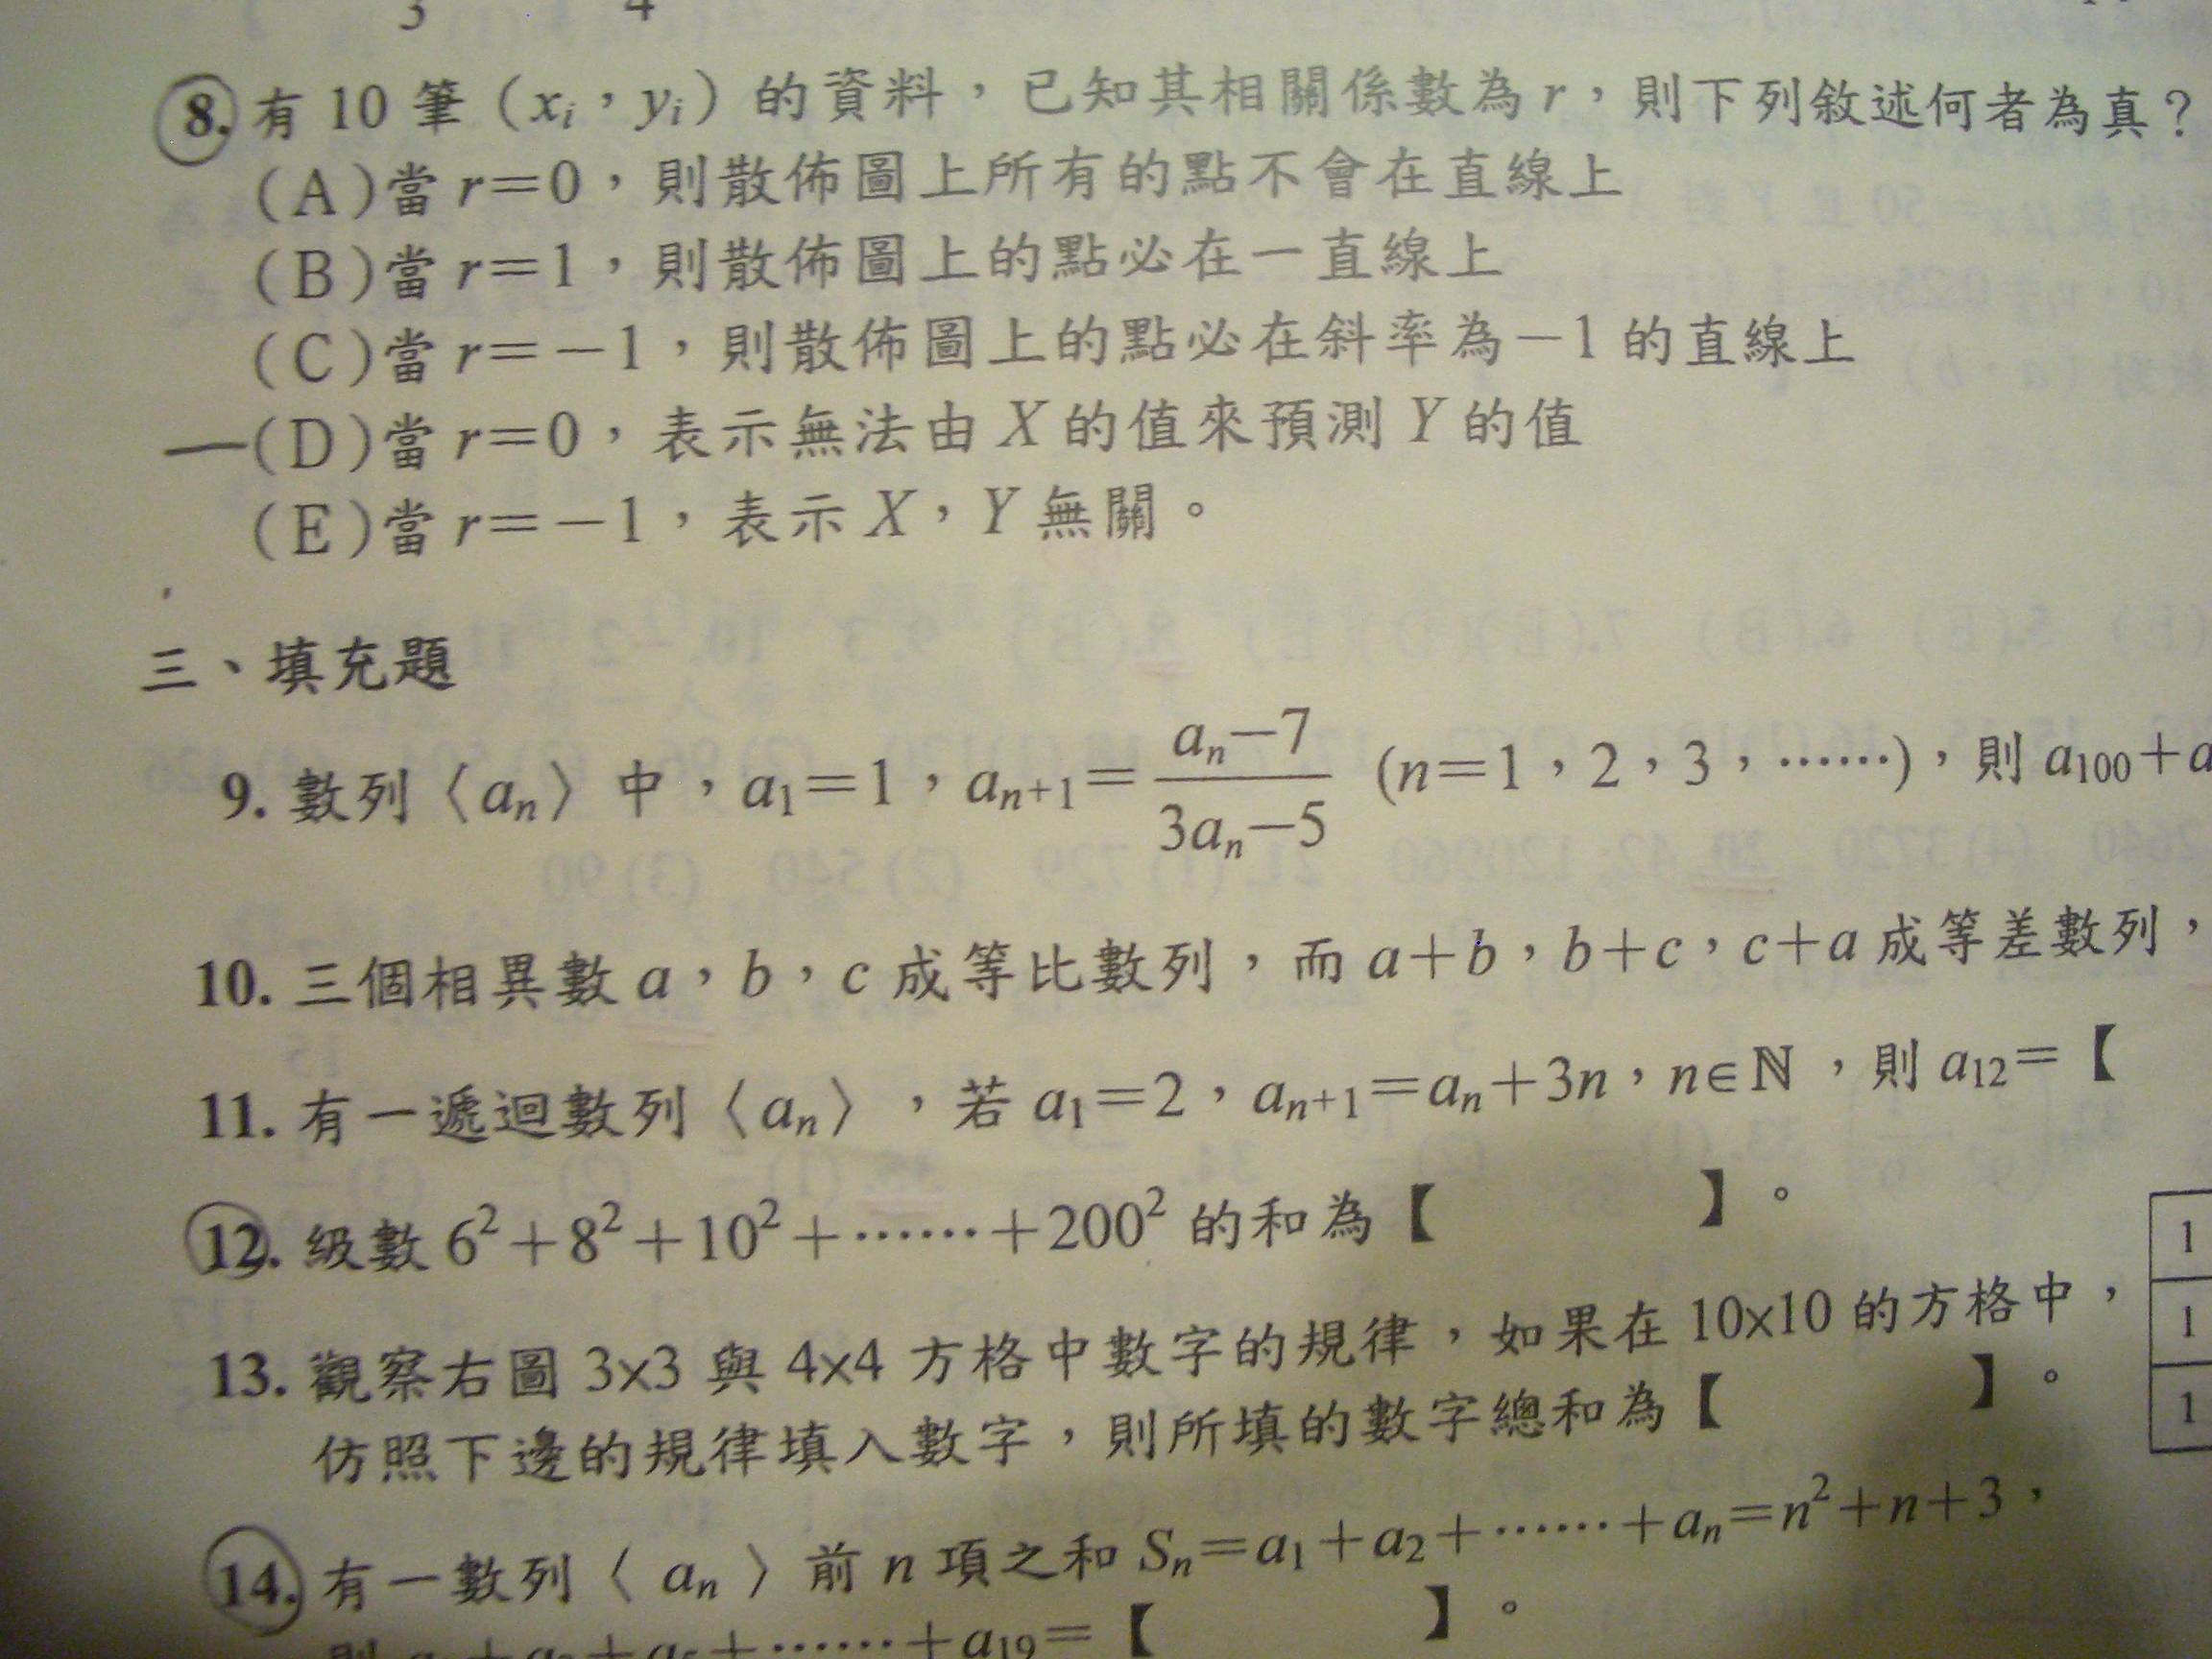 3 4
8. 有 10 筆 (xᵢ，yᵢ) 的資料，已知其相關係數為 r，則下列敘述何者為真？
(A)當 r=0，則散佈圖上所有的點不會在直線上
(B)當 r=1，則散佈圖上的點必在一直線上
(C)當 r=－1，則散佈圖上的點必在斜率為－1 的直線上
(D)當 r=0，表示無法由 X 的值來預測 Y 的值
(E)當 r=－1，表示 X，Y 無關。
三、填充題
9. 數列〈aₙ〉中，a₁=1，aₙ₊₁=(aₙ－7)/(3aₙ－5) (n=1，2，3，……)，則 a₁₀₀+a
10. 三個相異數 a，b，c 成等比數列，而 a+b，b+c，c+a 成等差數列，
11. 有一遞迴數列〈aₙ〉，若 a₁=2，aₙ₊₁=aₙ+3n，n∈ℕ，則 a₁₂=【
12. 級數 6²+8²+10²+……+200² 的和為【 】。
13. 觀察右圖 3x3 與 4x4 方格中數字的規律，如果在 10x10 的方格中，
仿照下邊的規律填入數字，則所填的數字總和為【 】。
1
1
1
14. 有一數列〈 aₙ 〉前 n 項之和 Sₙ=a₁+a₂+……+aₙ=n²+n+3，
+……+a₁₉=【 】。